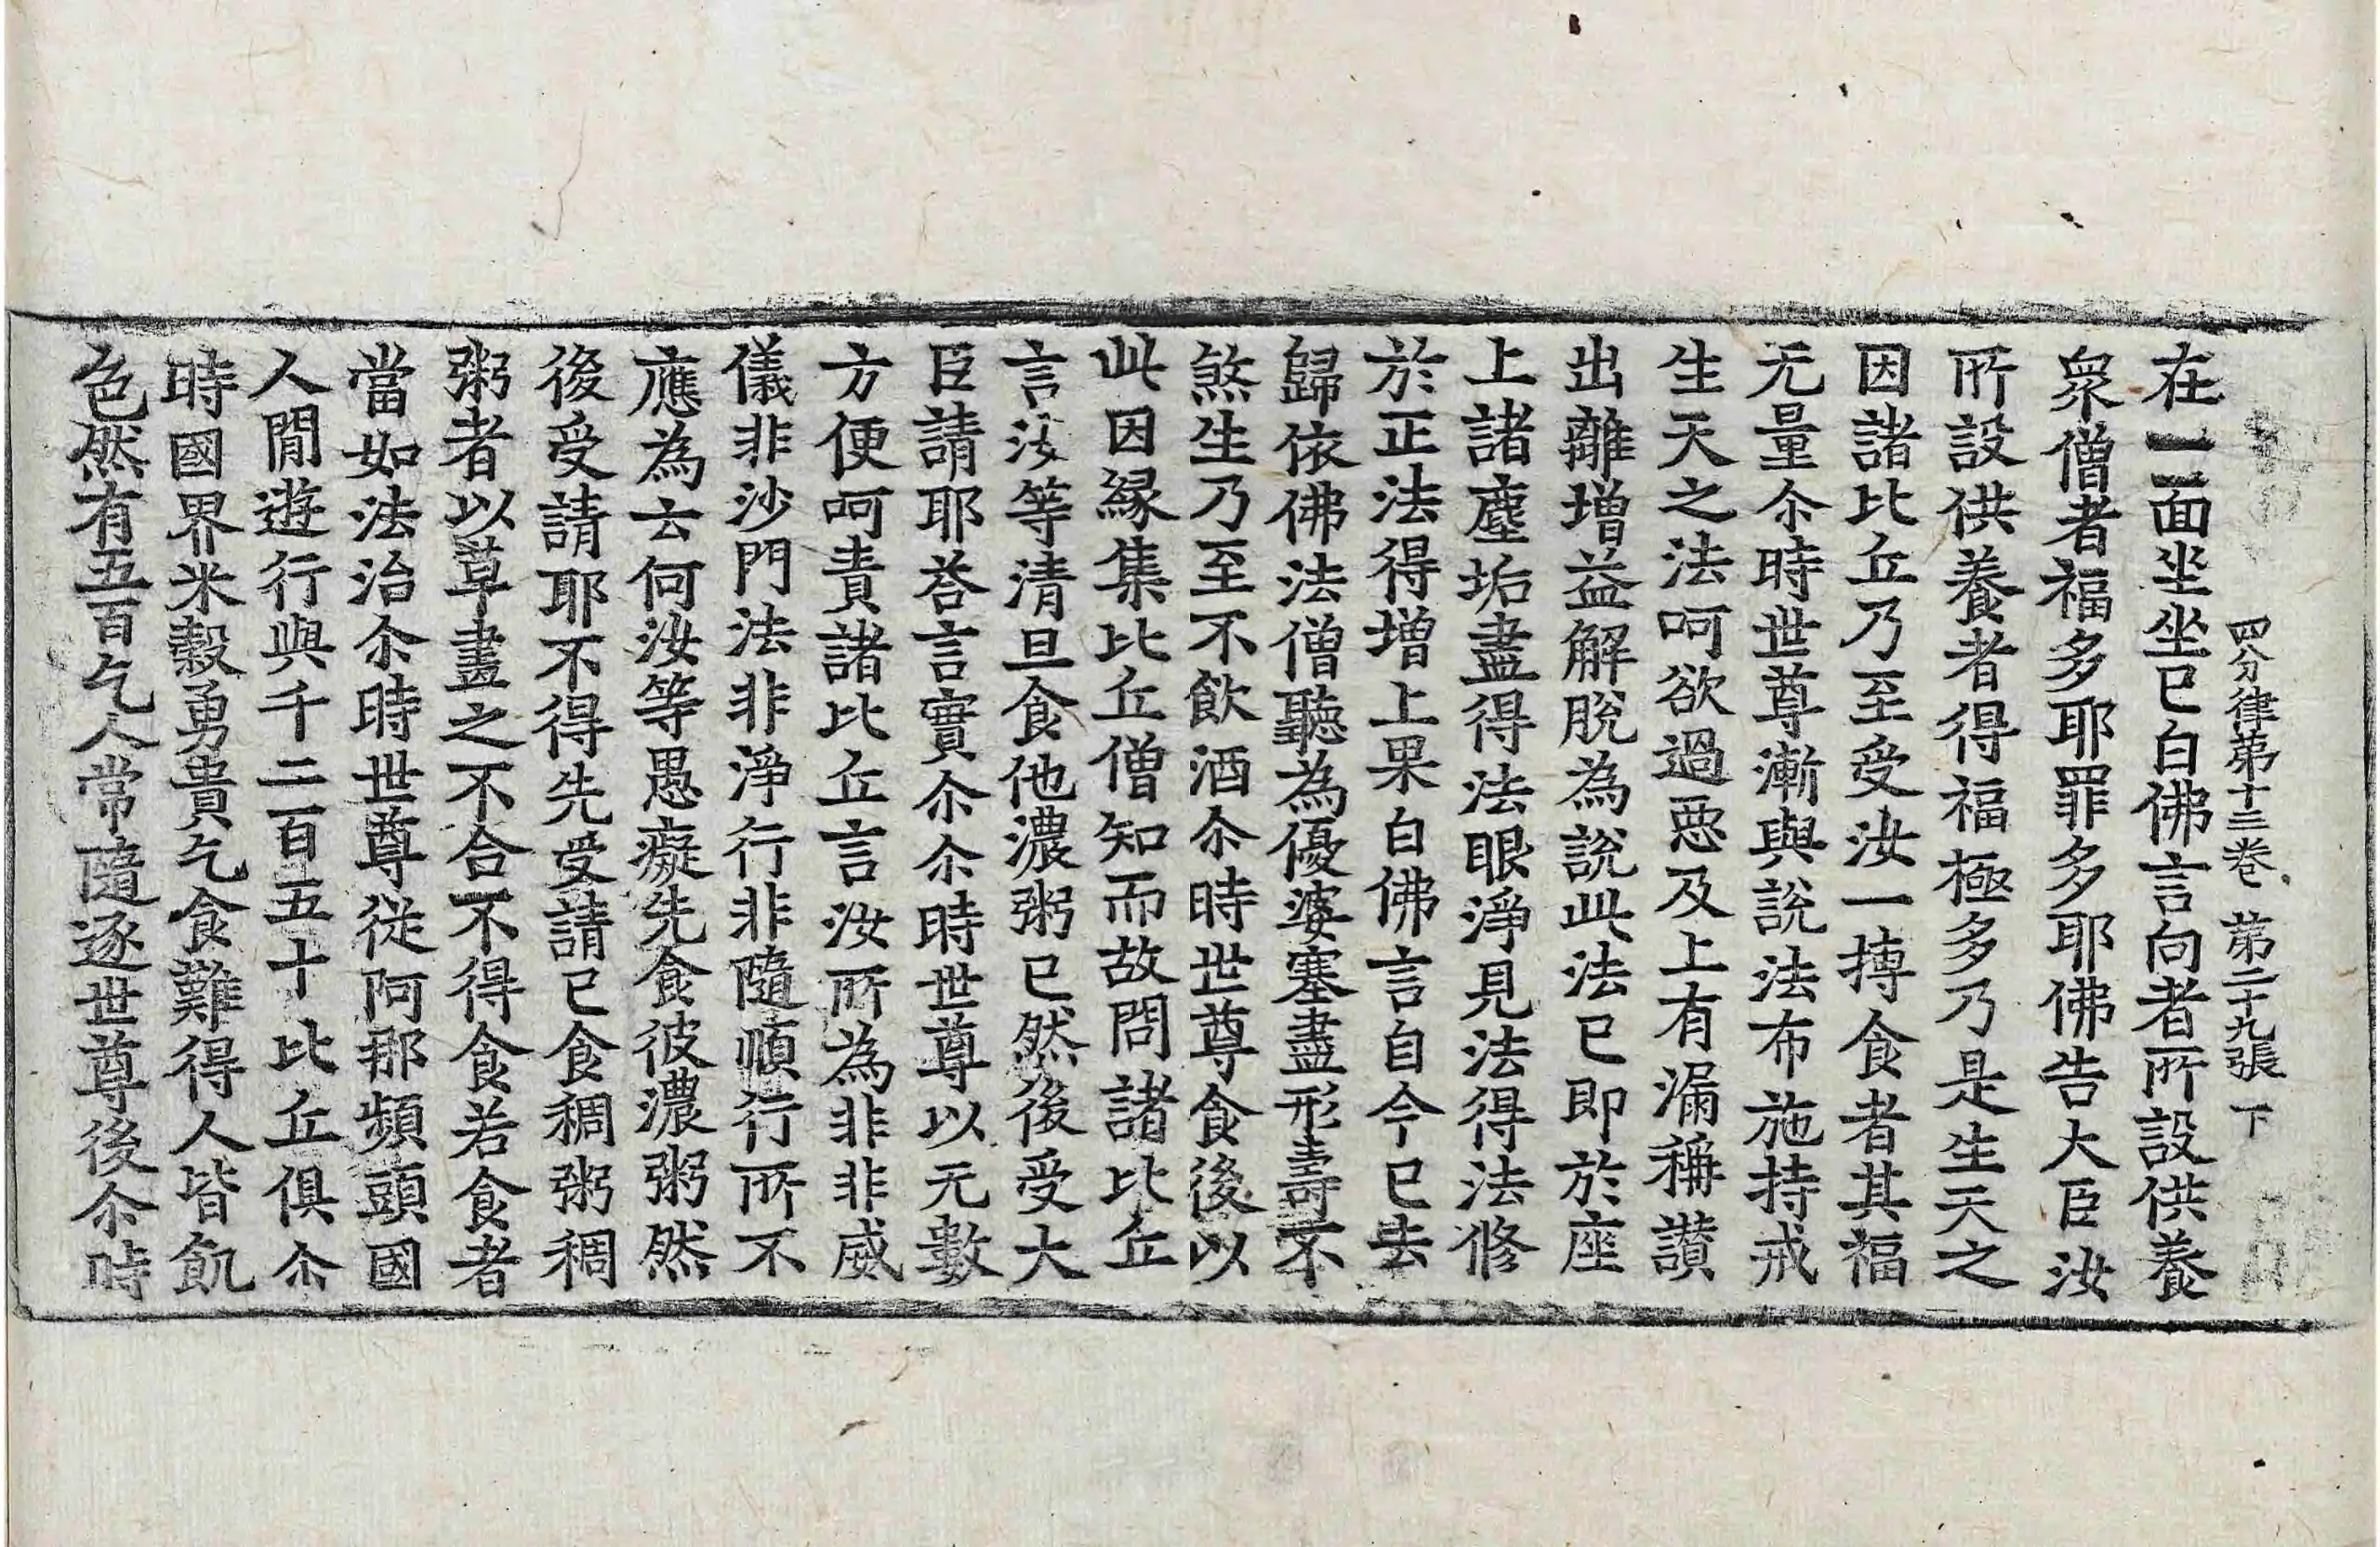 四分律第十三卷 第二十九張 下
在一面坐坐已白佛言向者所設供養
衆僧者福多耶罪多耶佛告大臣汝
所設供養者得福極多乃是生天之
因諸比丘乃至受汝一摶食者其福
无量尒時世尊漸與說法布施持戒
生天之法呵欲過惡及上有漏稱讚
出離增益解脫為說此法已即於座
上諸塵垢盡得法眼淨見法得法修
於正法得增上果白佛言自今已去
歸依佛法僧聽為優婆塞盡形壽不
煞生乃至不飲酒尒時世尊食後以
此因緣集比丘僧知而故問諸比丘
言汝等清旦食他濃粥已然後受大
臣請耶荅言實尒尒時世尊以无數
方便呵責諸比丘言汝所為非非威
儀非沙門法非淨行非隨順行所不
應為云何汝等愚癡先食彼濃粥然
後受請耶不得先受請已食稠粥稠
粥者以草畫之不合不得食若食者
當如法治尒時世尊從阿那頻頭國
人間遊行與千二百五十比丘俱尒
時國界米穀勇貴乞食難得人皆飢
色然有五百乞人常隨逐世尊後尒時